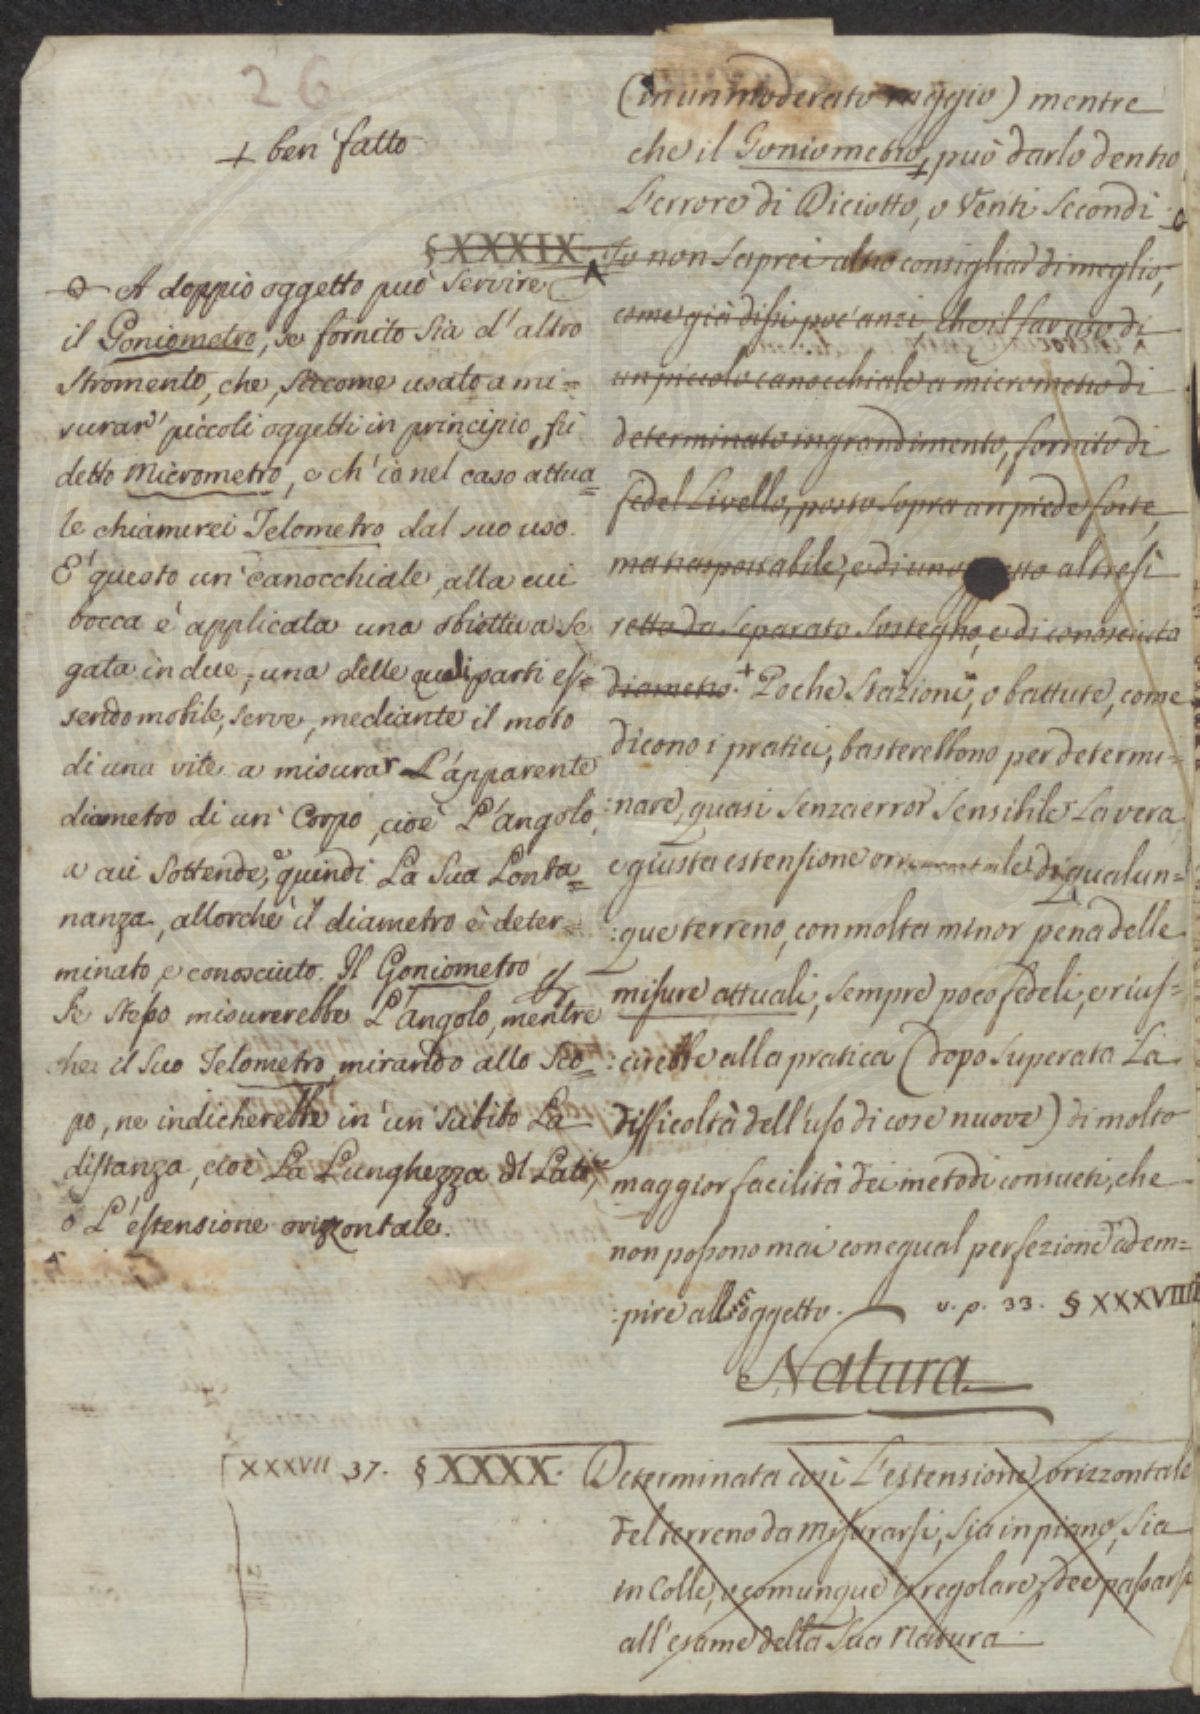 26
+ ben' fatto
A doppio oggetto può servire
il Goniometro, se fornito sia d'altro
stromento, che, siccome usato a mi=
surar' piccoli oggetti in principio, fù
detto Micrometro, e ch'io nel caso attua=
le chiamerei Telometro dal suo uso.
E' questo un' canocchiale, alla cui
bocca è applicata una obiettiva se
gata in due; una delle quali parti es=
sendo mobile, serve, mediante il moto
di una vite a misurar L'apparente
diametro di un' Corpo, cioè L'angolo,
a cui sottende, e quindi La sua Lonta=
nanza, allorchè il diametro è deter=
minato, e conosciuto. Il Goniometro
Se stesso misurerebbe L'angolo, mentre
che il suo Telometro mirando allo sco=
po, ne indicherebbe in' un' subito La
distanza, cioè La Lunghezza del Lato,
o L'estensione orizzontale.
(in un moderato raggio) mentre
che il Goniometro, + può darlo dentro
L'errore di Diciotto, o Venti secondi
§ XXXIX. Io non saprei altro consigliar di meglio,
come già dissi poc'anzi, che il far uso di
un piccolo canocchiale a micrometro di
determinato ingrandimento, fornito di
fedel Livello, posto sopra un piede forte,
ma trasportabile, e di altresì
retto da separato sostegno, e di conosciuto
diametro. + Poche stazioni, o battute, come
dicono i pratici, basterebbono per determi=
:nare, quasi senza error sensibile La vera,
e giusta estensione di qualun=
:que terreno, con molta minor pena delle
misure attuali, sempre poco fedeli, e rius=
:cirebbe alla pratica (dopo superata La
difficoltà dell'uso di cose nuove) di molto
maggior facilità dei metodi consueti, che
non possono mai con egual perfezione adem=
:pire all'oggetto. v. p. 33. § XXXVIIII
Natura
XXXVII 37. § XXXX. Determinata così L'estensione orizzontale
del terreno da misurarsi, sia in piano, sia
in Colle, o comunque irregolare, dee passarsi
all'esame della sua natura.